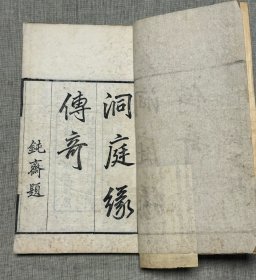 洞庭緣
傳奇
鈍齋題